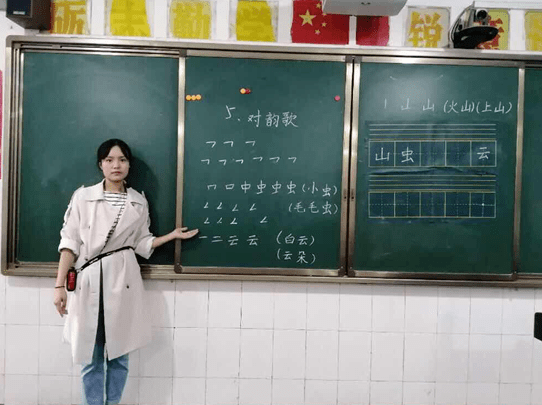 锐
5、对韵歌
ㄱ ㄱ ㄱ
ㄱ ㄱ ㄱ ㄱ ㄱ ㄱ
口 中 虫 虫 虫 (小虫)
(毛毛虫)
一 二 云 云 (白云)
(云朵)
丨 山 山 (火山)(上山)
山 虫 云